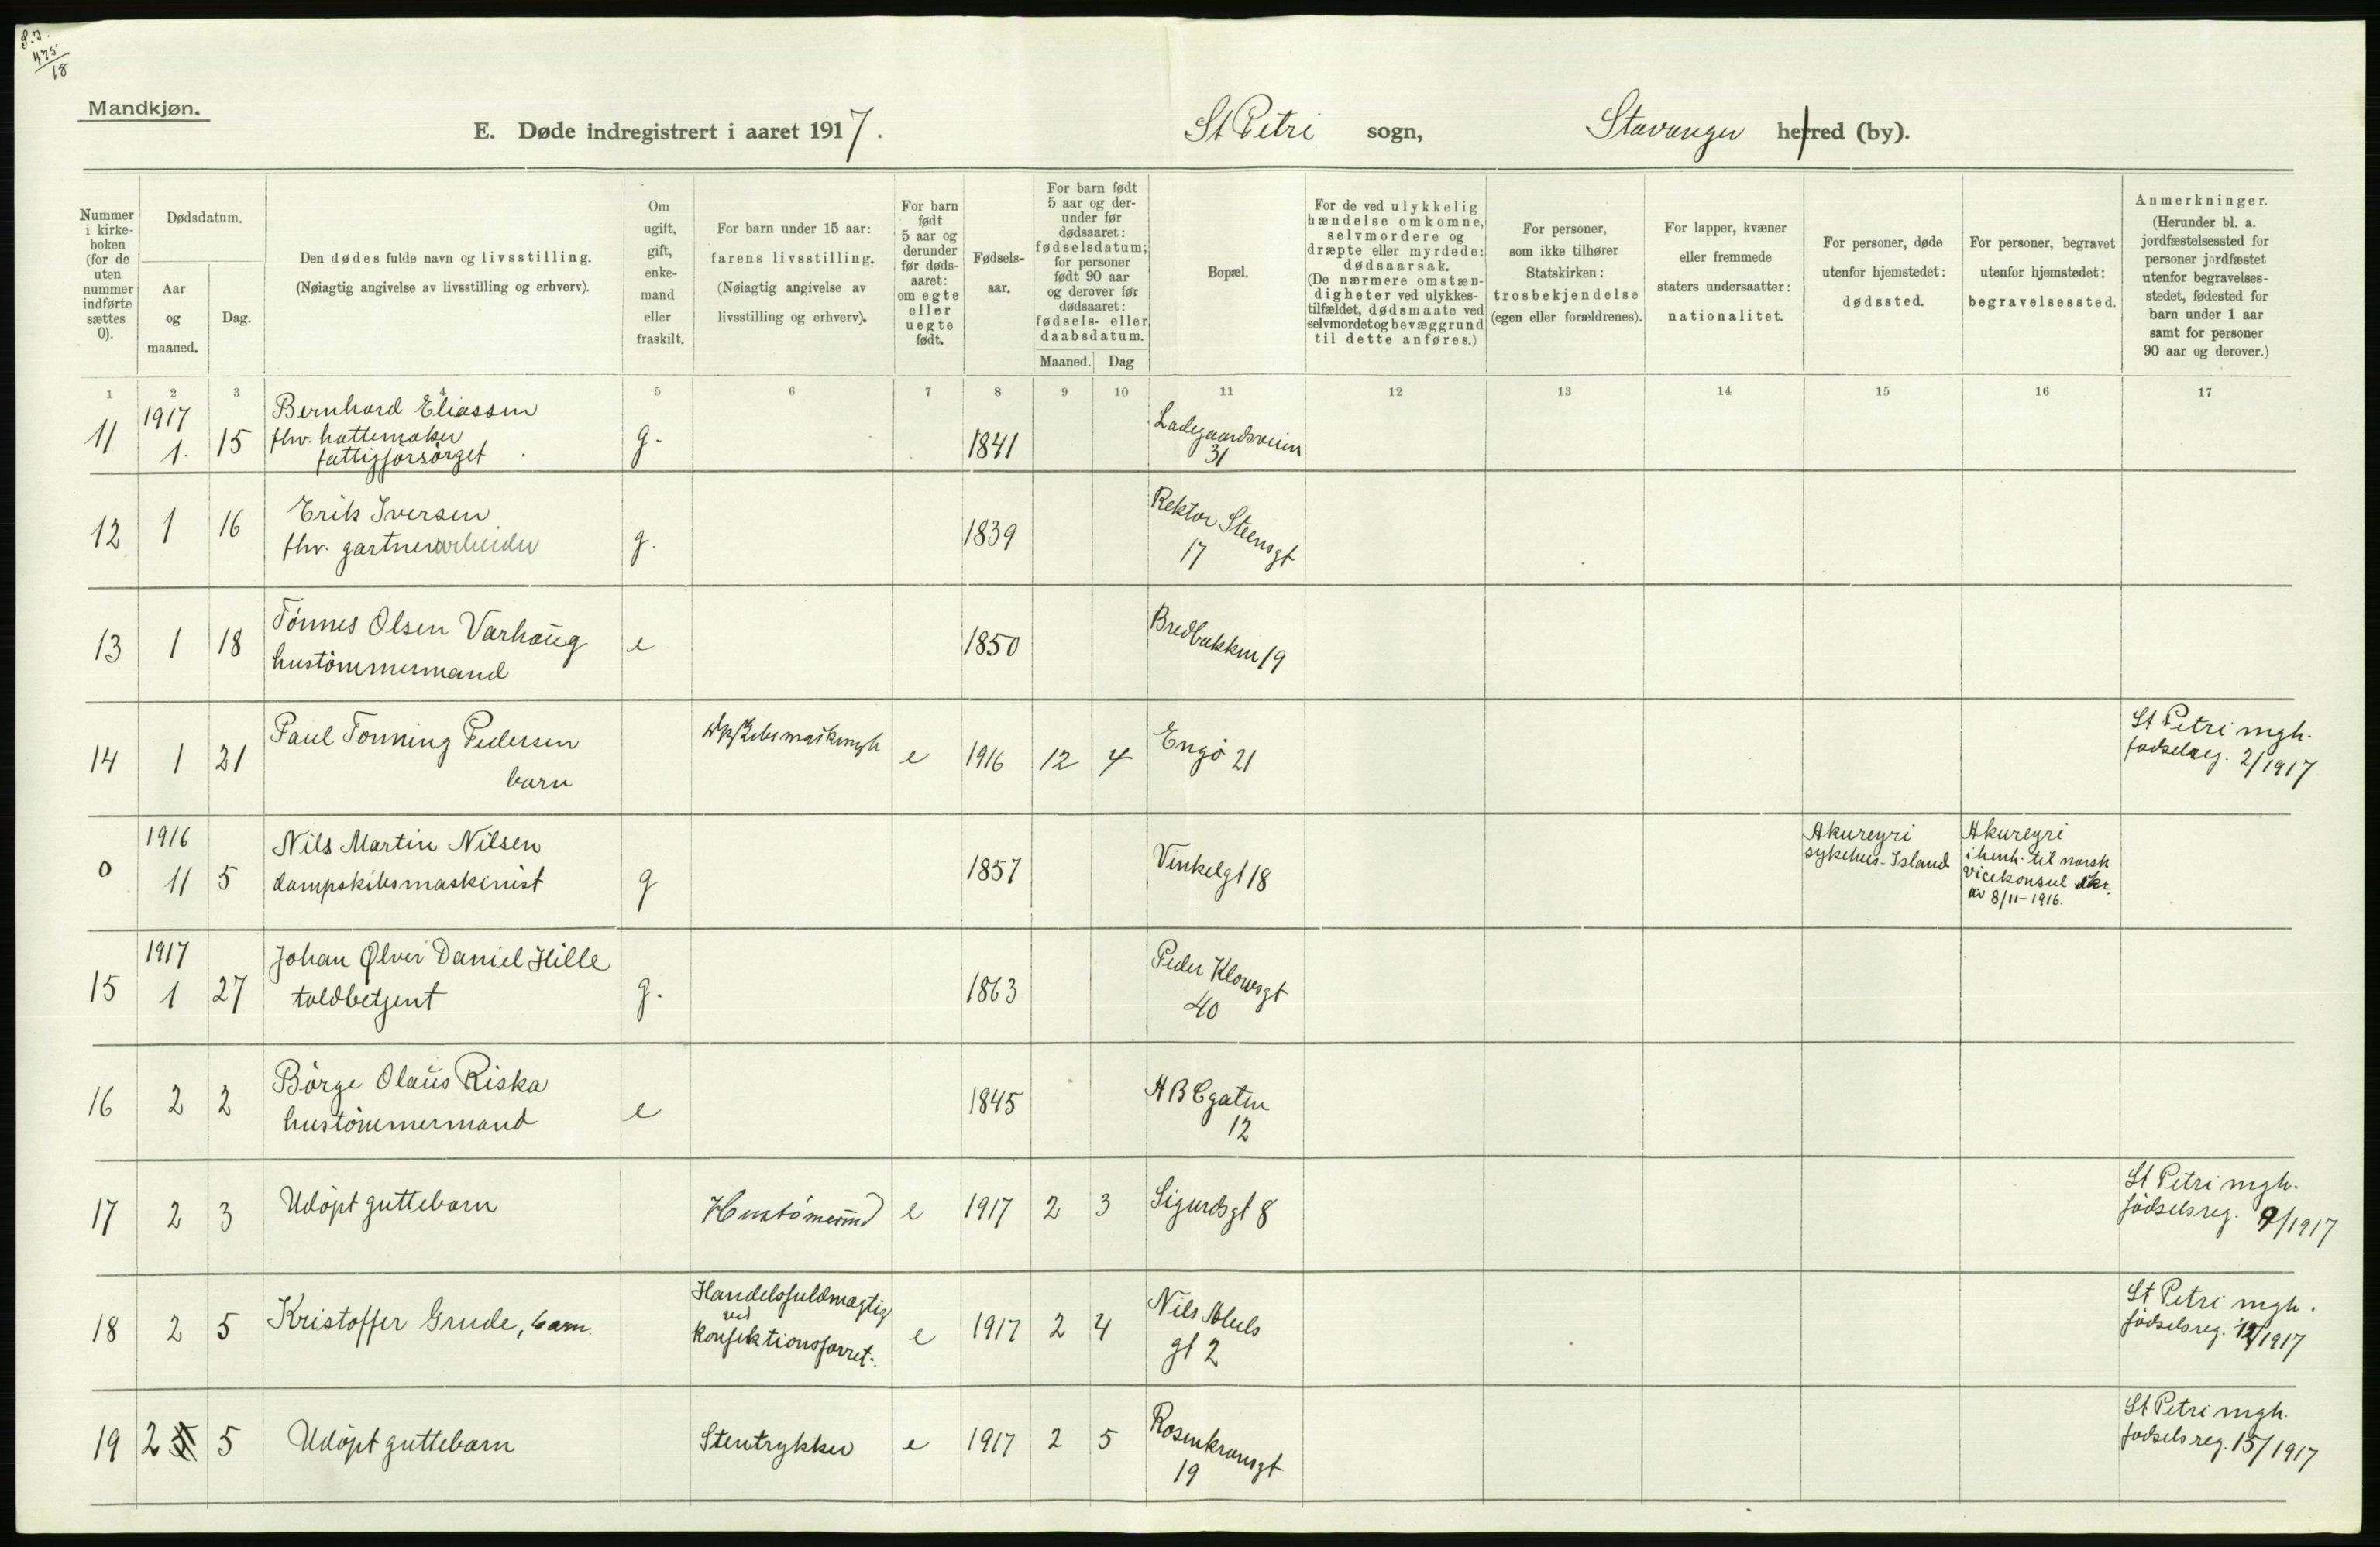 S.J.
475/18
Mandkjøn.
E. Døde indregistrert i aaret 1917. St Petri sogn, Stavanger herred (by).
Nummer i kirke- boken (for de uten nummer indførte sættes 0).
Dødsdatum.
Aar og maaned.
Dag.
Den dødes fulde navn og livsstilling.
(Nøiagtig angivelse av livsstilling og erhverv).
Om ugift, gift, enke- mand eller fraskilt.
For barn under 15 aar: farens livsstilling. (Nøiagtig angivelse av livsstilling og erhverv).
For barn født 5 aar og derunder før døds- aaret: om egte eller uegte født.
Fødsels- aar.
For barn født 5 aar og der- under før dødsaaret: fødselsdatum; for personer født 90 aar og derover før dødsaaret: fødsels- eller daabsdatum.
Maaned. Dag
Bopæl.
For de ved ulykkelig hændelse omkomne, selvmordere og dræpte eller myrdede: dødsaarsak. (De nærmere omstæn- digheter ved ulykkes- tilfældet, dødsmaate ved selvmordet og bevæggrund til dette anføres.)
For personer, som ikke tilhører Statskirken: trosbekjendelse (egen eller forældrenes).
For lapper, kvæner eller fremmede staters undersaatter: nationalitet.
For personer, døde utenfor hjemstedet: dødssted.
For personer, begravet utenfor hjemstedet: begravelsessted.
Anmerkninger. (Herunder bl. a. jordfæstelsessted for personer jordfæstet utenfor begravelses- stedet, fødested for barn under 1 aar samt for personer 90 aar og derover.)
1 2 3 4 5 6 7 8 9 10 11 12 13 14 15 16 17
11 1917 1. 15 Bernhard Eliassen g. 1841 Ladegaardsveien 31
fhv. hattemaker
fattigforsørget
12 1 16 Erik Iversen g. 1839 Rektor Steensgt 17
fhv. gartnerarbeider
13 1 18 Tönnes Olsen Varhaug e 1850 Bredbakken 19
hustömmermand
14 1 21 Paul Tonning Pedersen e 1916 12 4 Engö 21 St Petri mgh.
barn fødselsreg. 2/1917
0 1916 11 5 Nils Martin Nilsen g 1857 Vinkelgt 18 Akureyri sykehus - Island Akureyri
dampskibsmaskinist i henh. til norsk
vicekonsul
av 8/11-1916.
15 1917 1 27 Johan Ølver Daniel Hille g. 1863 Peder Klowsgt 40
toldbetjent
16 2 2 Börge Olaus Riska e 1845 ABCgaten 12
hustömmermand
17 2 3 Udöpt guttebarn Hustömermd e 1917 2 3 Sigurdsgt 8 St Petri mgh.
födselsreg. 9/1917
18 2 5 Kristoffer Grude, barn. Handelsfuldmægtig ved konfektionsforret. e 1917 2 4 Nils Abels gt 2 St Petri mgh.
födselsreg. 12/1917
19 2 5 Udöpt guttebarn Stentrykker e 1917 2 5 Rosenkransgt 19 St Petri mgh.
fødselsreg. 15/1917